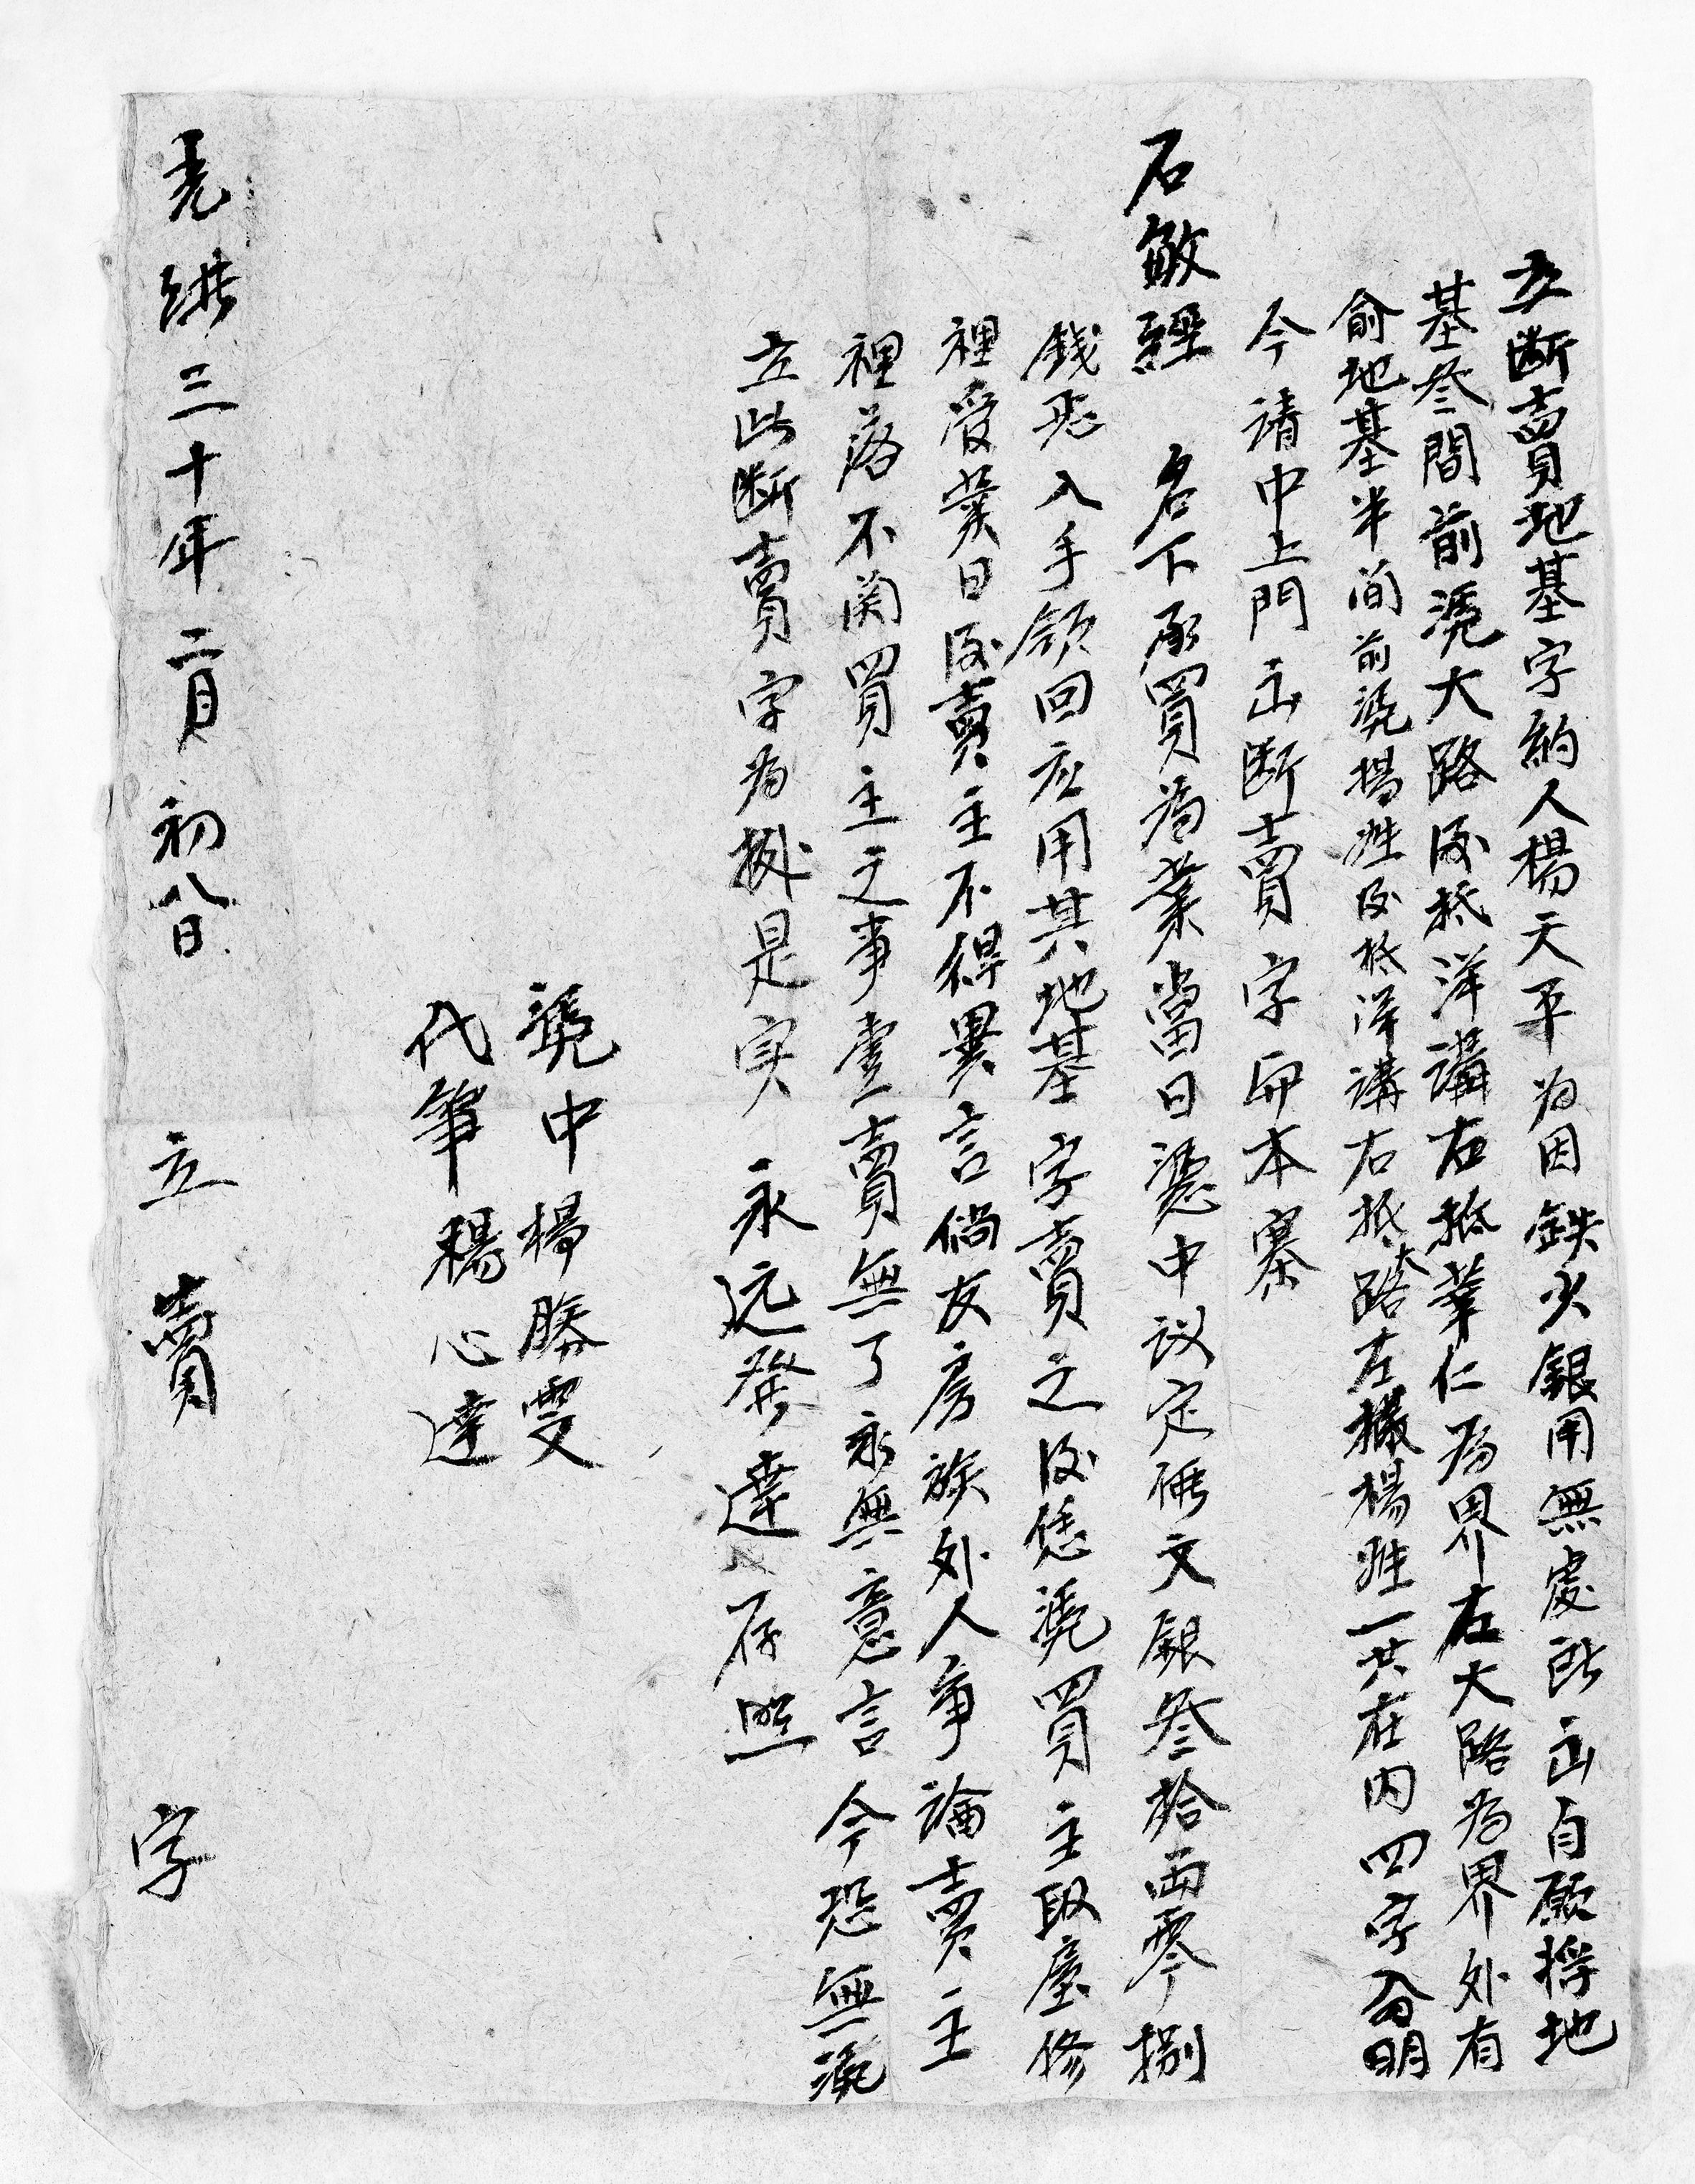 立断賣地基字約人楊天平為因缺少銀用無處所出自愿将地
基叁間前凴大路後抵洋溝右抵華仁為界左大路為界外有
俞地基半间前凴楊姓後抵洋溝右抵大路左據楊姓一共在内四字分明
今請中上門出断賣字與本寨
石敏經 名下承買為業當日憑中议定價文銀叁拾両零捌
錢飛入手領回應用其地基字賣之後恁凴買主取屋修
裡受業日後賣主不得異言倘友房族外人争論賣主
裡落不関買主之事壹賣無了永無意言今恐無凴
立此断賣字為據是实 永远發達存照
凴中楊勝雯
代筆楊心達
光緒三十年二月初八日 立 賣 字